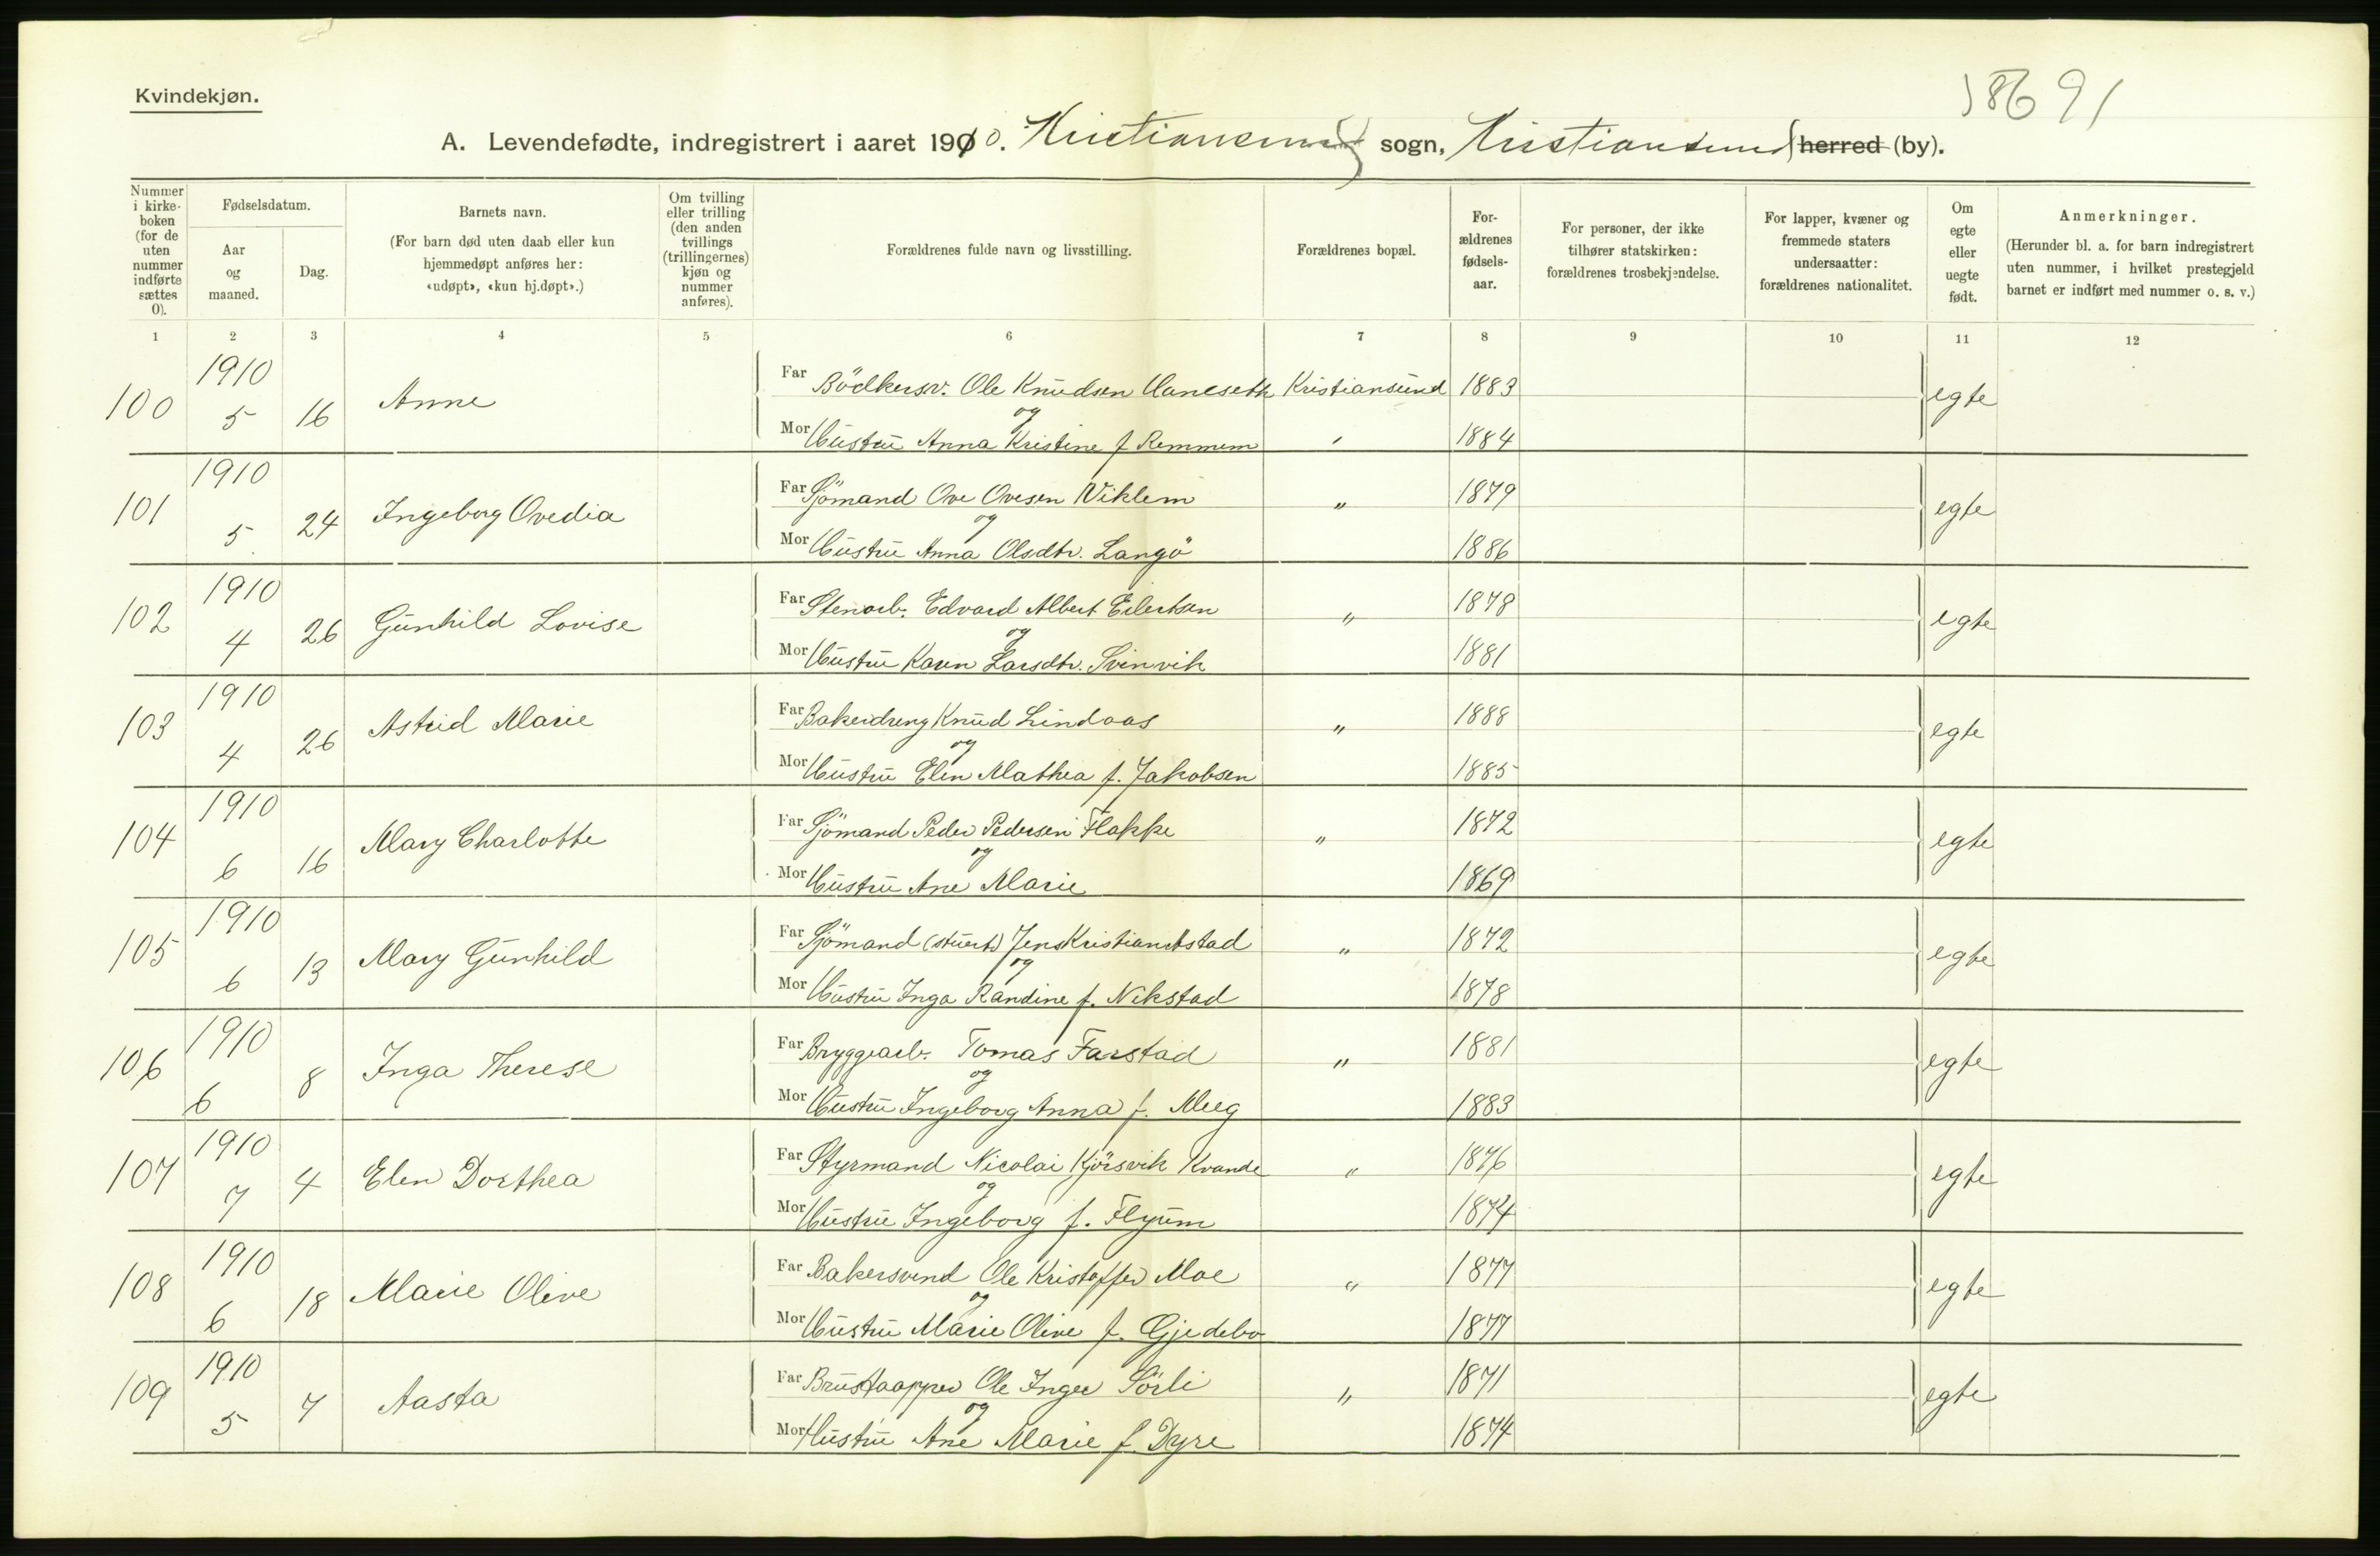 Kvindekjøn.
A. Levendefødte, indregistrert i aaret 1910. Kristiansund sogn, Kristiansund herred (by).
Nummer i kirke-boken (for de uten nummer indførte sættes 0).
Fødselsdatum.
Aar og maaned.
Dag.
Barnets navn.
(For barn død uten daab eller kun hjemmedøpt anføres her: «udøpt», «kun hj.døpt».)
Om tvilling eller trilling (den anden tvillings (trillingernes) kjøn og nummer anføres).
Forældrenes fulde navn og livsstilling.
Forældrenes bopæl.
For-ældrenes fødsels-aar.
For personer, der ikke tilhører statskirken: forældrenes trosbekjendelse.
For lapper, kvæner og fremmede staters undersaatter: forældrenes nationalitet.
Om egte eller uegte født.
Anmerkninger.
(Herunder bl. a. for barn indregistrert uten nummer, i hvilket prestegjeld barnet er indført med nummer o. s. v.)
1 2 3 4 5 6 7 8 9 10 11 12
100 1910 5 16 Anne Far Bödkersv. Ole Knudsen Haneseth Kristiansund 1883 egte
og
Mor Hustru Anna Kristine f Remmem " 1884
101 1910 5 24 Ingeborg Ovedia Far Sjömand Ove Ovesen Viklem " 1879 egte
og
Mor Hustru Anna Olsdtr. Langö 1886
102 1910 4 26 Gunhild Lovise Far Stenarb. Edvard Albert Eilertsen " 1878 egte
og
Mor Hustru Karen Larsdtr. Svinvik 1881
103 1910 4 26 Astrid Marie Far Bakerdreng Knud Lindaas " 1888 egte
og
Mor Hustru Elen Mathea f. Jakobsen 1885
104 1910 6 16 Mary Charlotte Far Sjömand Peder Pedersen Flakke " 1872 egte
og
Mor Hustru Ane Marie 1869
105 1910 6 13 Mary Gunhild Far Sjömand (stuert) Jens " 1872 egte
og
Mor Hustru Inga Randine f. Nekstad 1878
106 1910 6 8 Inga Therese Far Bryggearb. Tomas Farstad " 1881 egte
og
Mor Hustru Ingeborg Anna f. Meeg 1883
107 1910 7 4 Elen Dorthea Far Styrmand Nicolai Kjörsvik Kvande " 1876 egte
og
Mor Hustru Ingeborg f. Flyum 1874
108 1910 6 18 Marie Olive Far Bakersvend Ole Kristoffer Moe " 1877 egte
og
Mor Hustru Marie Olive f. Gjedebo 1877
109 1910 5 7 Aasta Far Ole Inger Sörli " 1871 egte
og
Mor Hustru Ane Marie f. Dyre 1874